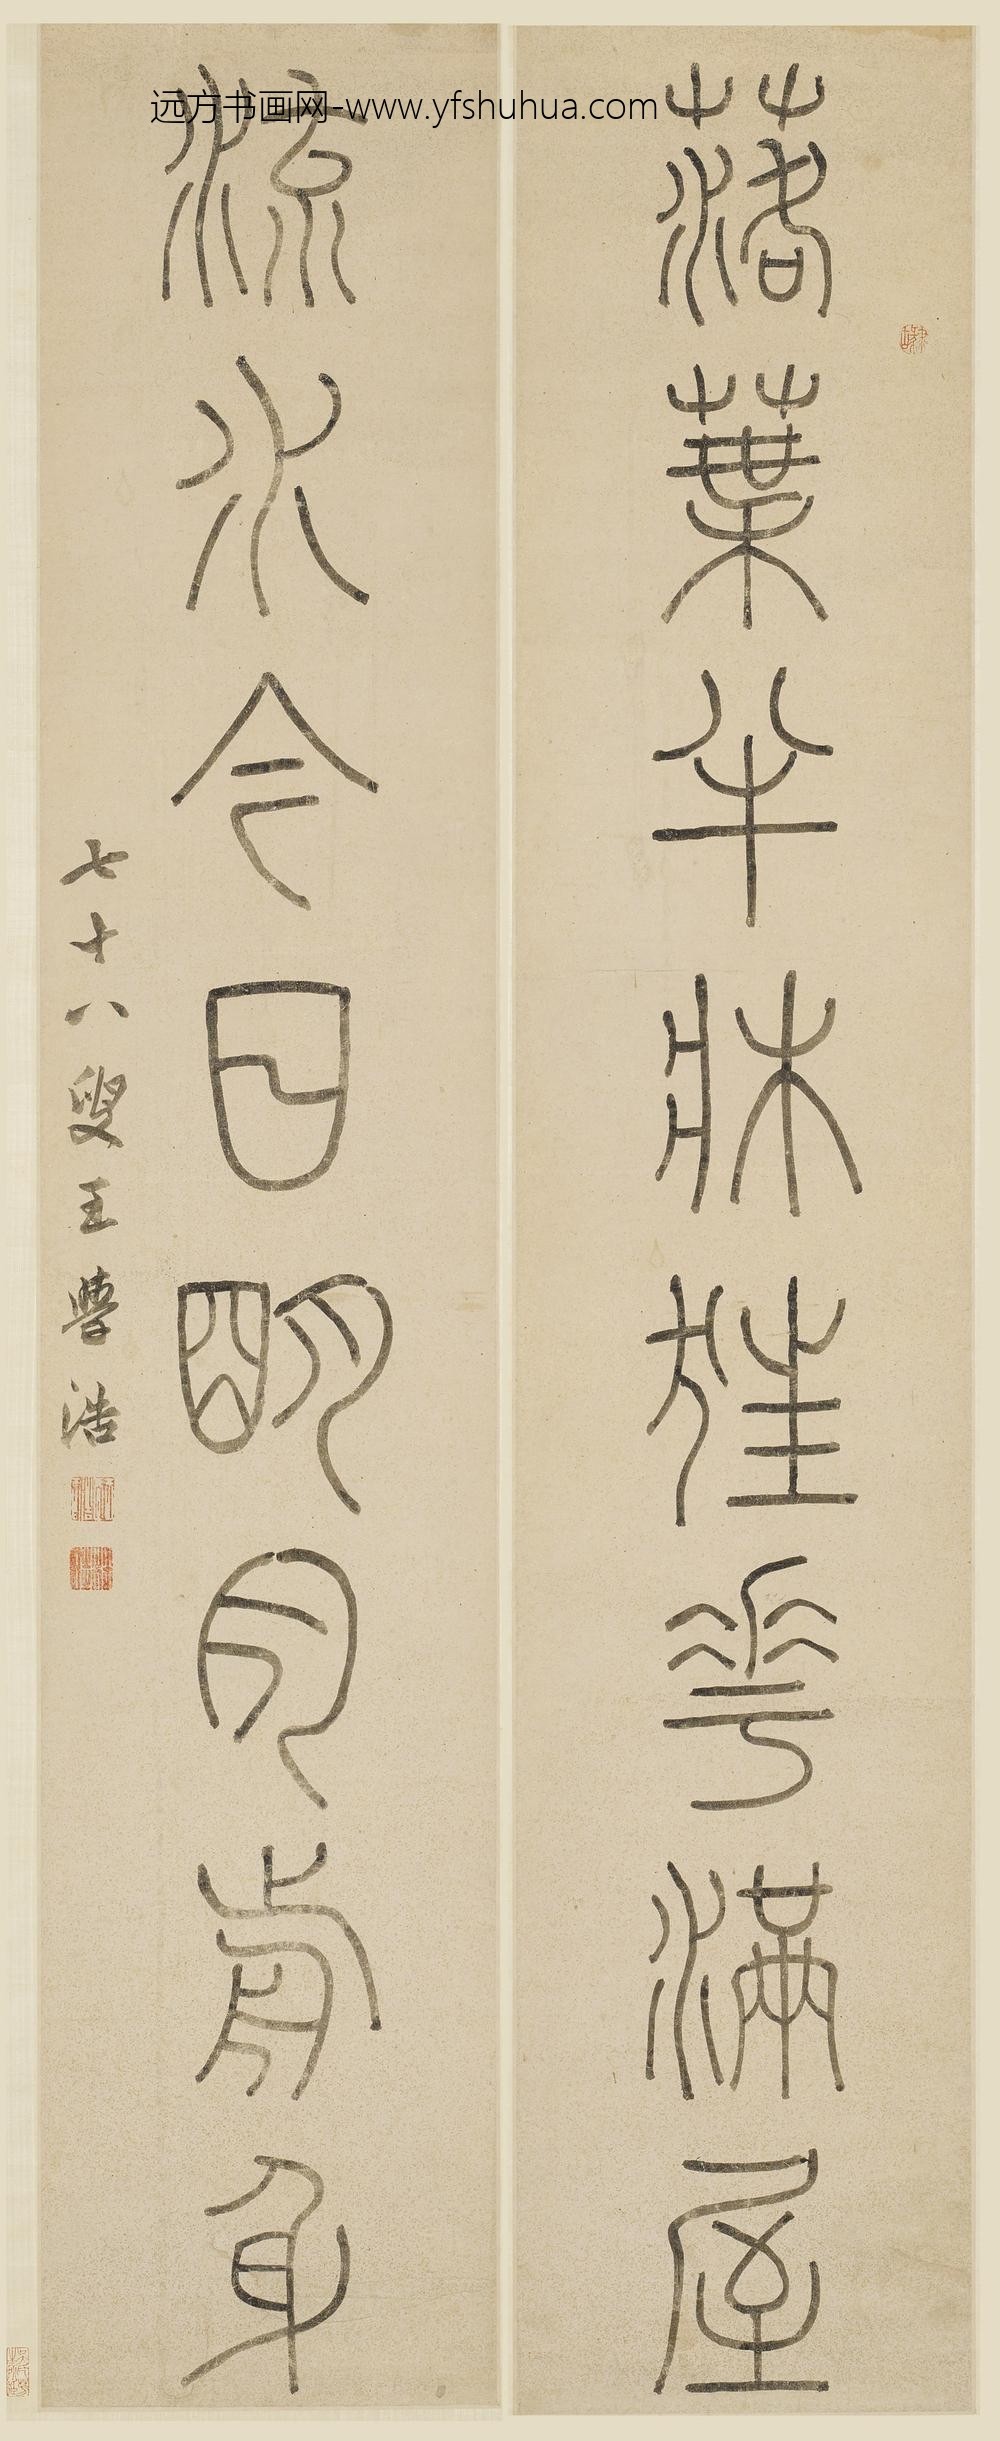 远方书画网-www.yfshuhua.com
落葉半牀狂花滿屋
流水今日明月前身
七十八叟王學浩